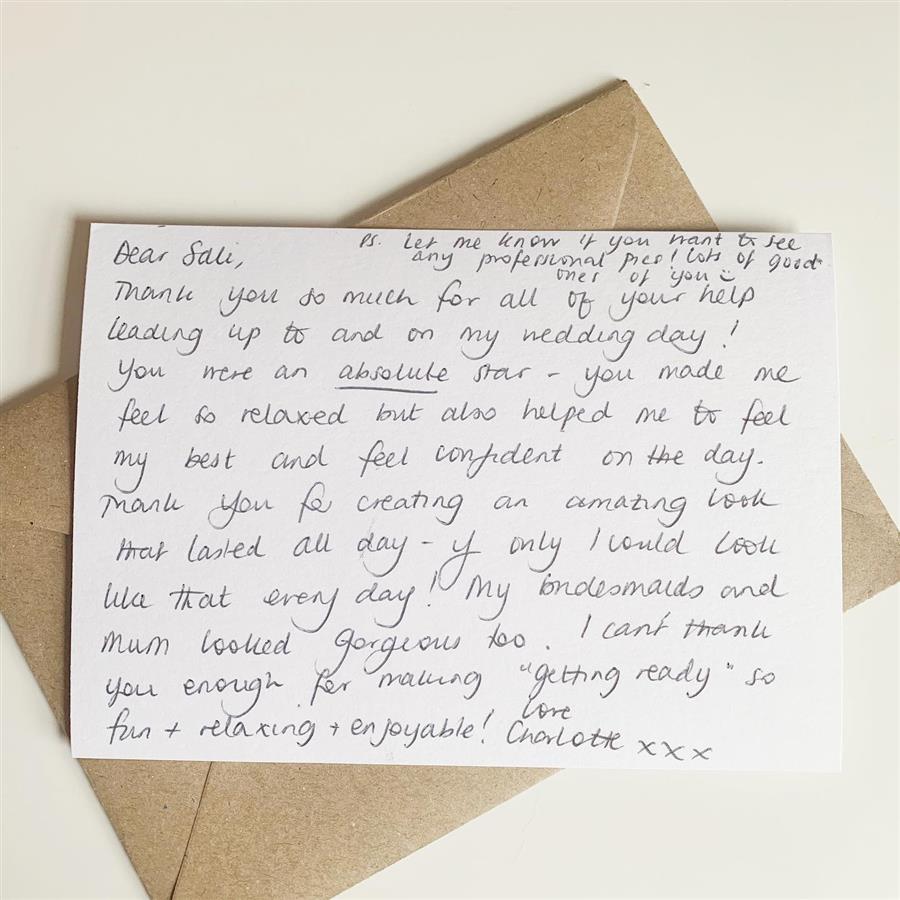 Dear Sali,
Ps. Let me know if you want to see
any professional pics! Lots of good
ones of you
Thank you so much for all of your help
leading up to and on my wedding day!
You were an absolute star - you made me
feel so relaxed but also helped me to feel
my best and feel confident on the day.
Thank you for creating an amazing look
that lasted all day - if only I could look
like that every day! My bridesmaids and
Mum looked gorgeous too. I can't thank
you enough for making "getting ready" so
fun + relaxing + enjoyable! Love
Charlotte xxx